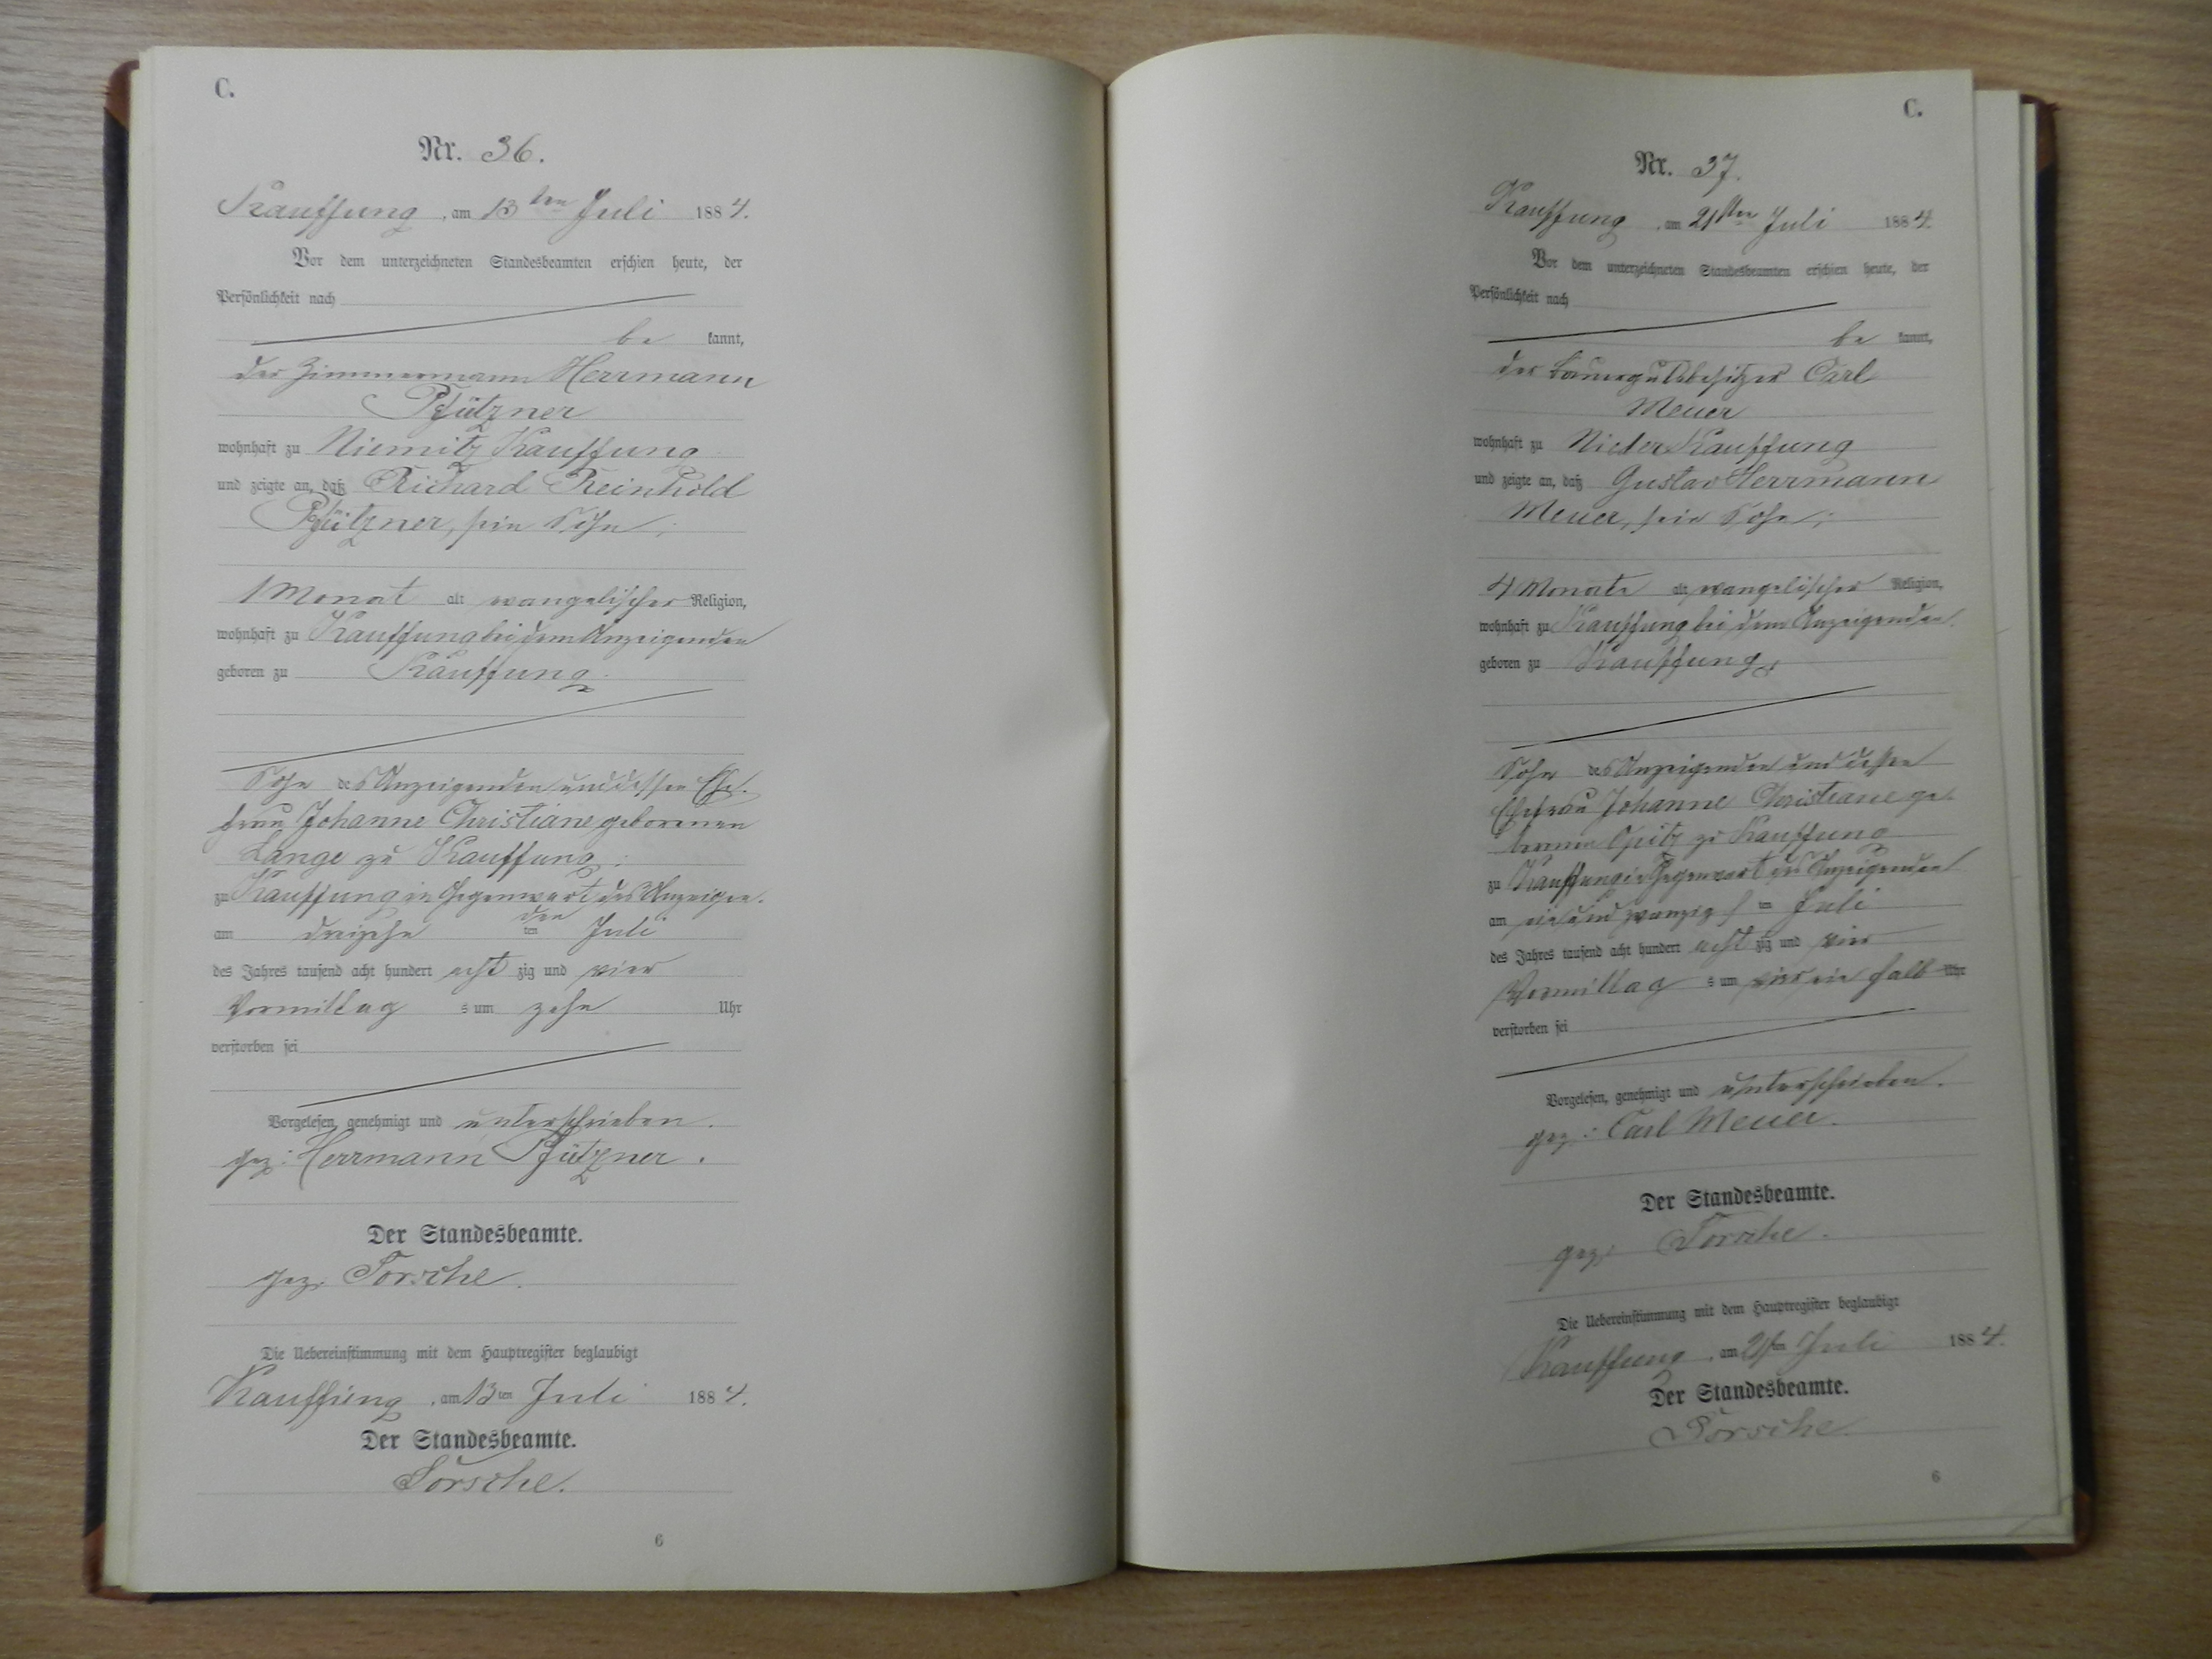 C.
Nr. 36.
Kauffung, am 13ten Juli 1884.
Vor dem unterzeichneten Standesbeamten erschien heute, der
Persönlichkeit nach
be kannt,
der Zimmermann Herrmann
Pfützner
wohnhaft zu Niemitz Kauffung
und zeigte an, daß Richard Reinhold
Pfützner, sein Sohn,
1 Monat alt evangelischer Religion,
wohnhaft zu Kauffung bei dem Anzeigenden
geboren zu Kauffung
Sohn des Anzeigenden und dessen Ehe-
frau Johanne Christiane geborenen
Lange zu Kauffung
zu Kauffung in Gegenwart des Anzeigen-
den
am dreizehn ten Juli
des Jahres tausend acht hundert acht zig und vier
Vormittag s um zehn Uhr
verstorben sei
Vorgelesen, genehmigt und unterschrieben.
gez: Herrmann Pfützner.
Der Standesbeamte.
gez. Torsche.
Die Uebereinstimmung mit dem Hauptregister beglaubigt
Kauffung, am 13ten Juli 1884.
Der Standesbeamte.
Torsche.
6
C.
Nr. 37.
Kauffung, am 21ten Juli 1884.
Vor dem unterzeichneten Standesbeamten erschien heute, der
Persönlichkeit nach
be kannt,
der Bauergutsbesitzer Carl
Meuer
wohnhaft zu Nieder Kauffung
und zeigte an, daß Gustav Herrmann
Meuer, sein Sohn,
4 Monate alt, evangelischer Religion,
wohnhaft zu Kauffung bei dem Anzeigenden.
geboren zu Kauffung
Sohn des Anzeigenden und dessen
Ehefrau Johanne Christiane ge-
borenen Opitz zu Kauffung
zu Kauffung in Gegenwart des Anzeigenden
am ein und zwanzigs ten Juli
des Jahres tausend acht hundert acht zig und vier
Vormittag s um vier ein halb Uhr
verstorben sei
Vorgelesen, genehmigt und unterschrieben.
gez.: Carl Meuer.
Der Standesbeamte.
gez. Torsche.
Die Uebereinstimmung mit dem Hauptregister beglaubigt
Kauffung, am 21ten Juli 1884.
Der Standesbeamte.
Torsche.
6